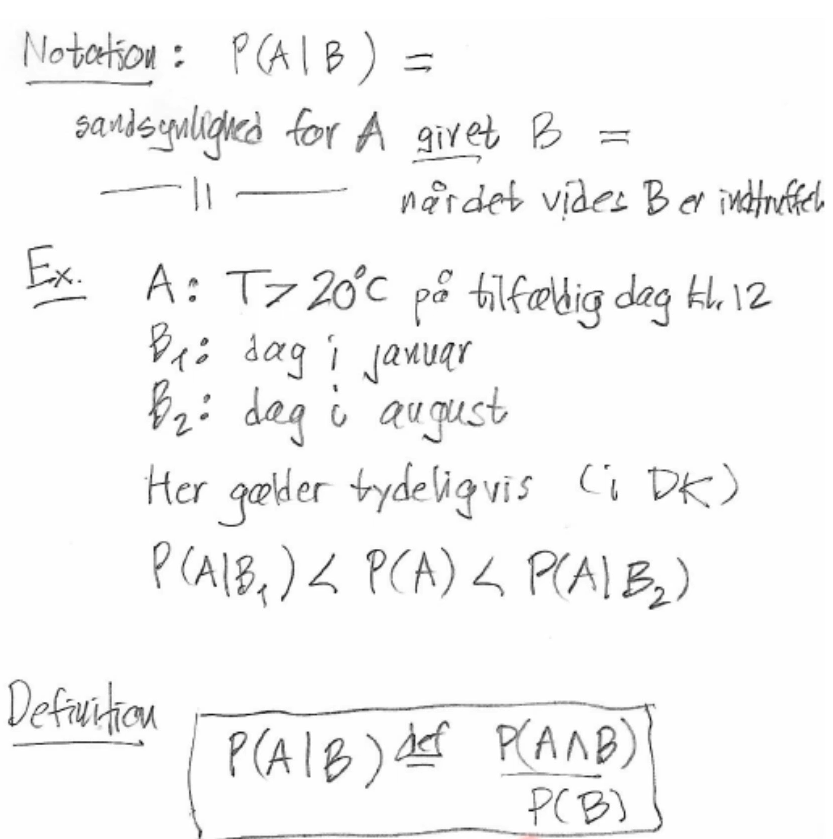 Notation: P(A|B) =
sandsynlighed for A givet B =
—— || —— når det vides B er indtruffet
Ex. A: T > 20°C på tilfældig dag kl. 12
B₁: dag i januar
B₂: dag i august
Her gælder tydeligvis (i DK)
P(A|B₁) < P(A) < P(A|B₂)
Definition P(A|B) def= P(A∧B)/P(B)